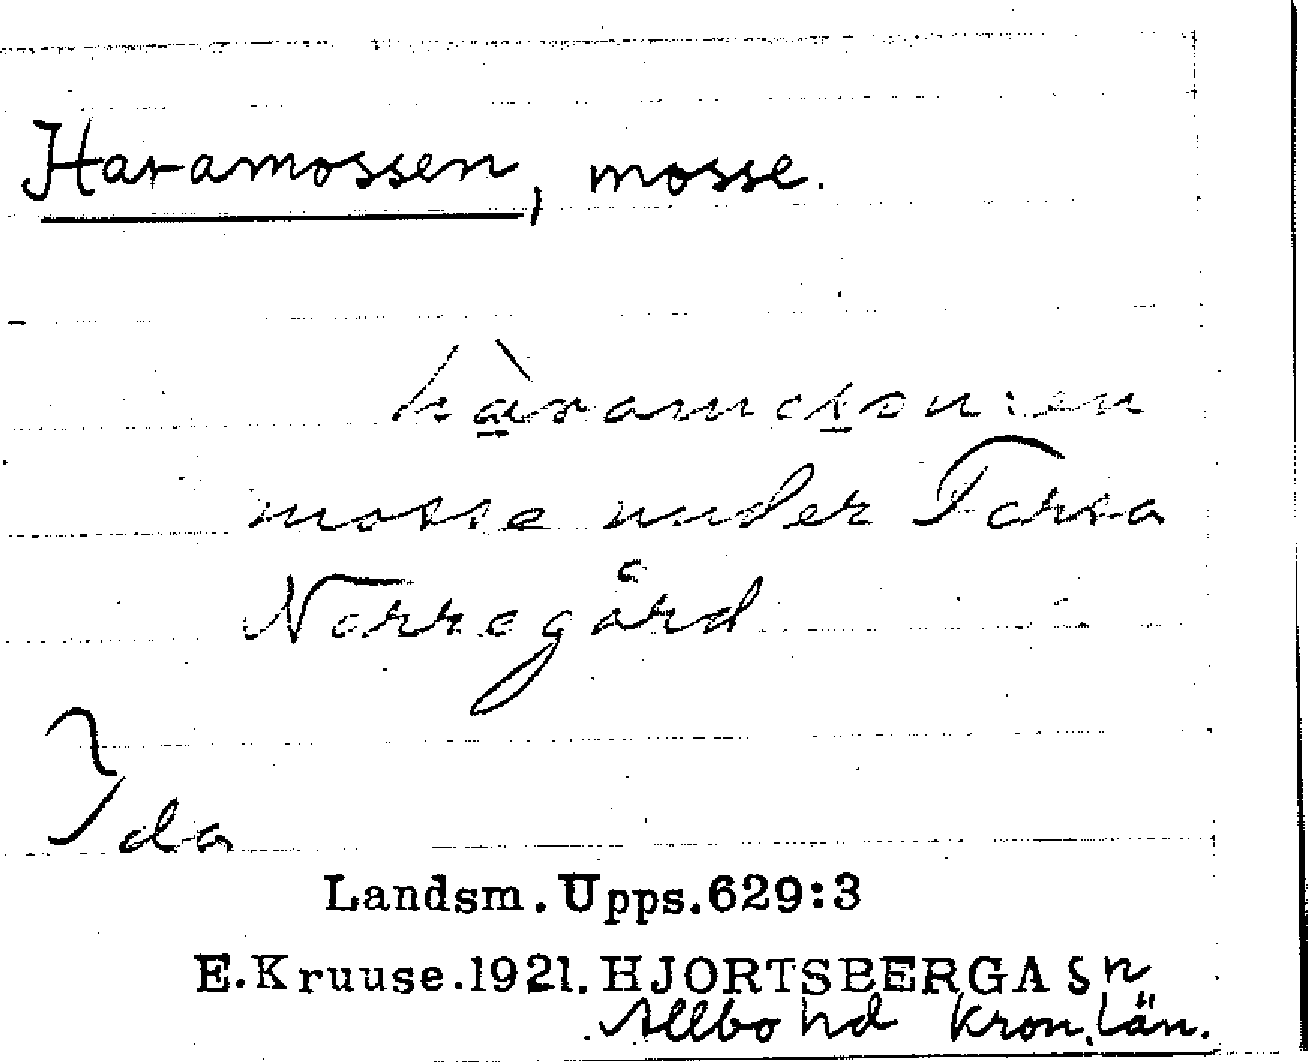 Haramossen, mosse.
hàramosən: en
mosse under Torsa
Norregård
Ida
Landsm. Upps. 629:3
E. Kruuse. 1921. HJORTSBERGA sn
Allbo hd Kron. län.